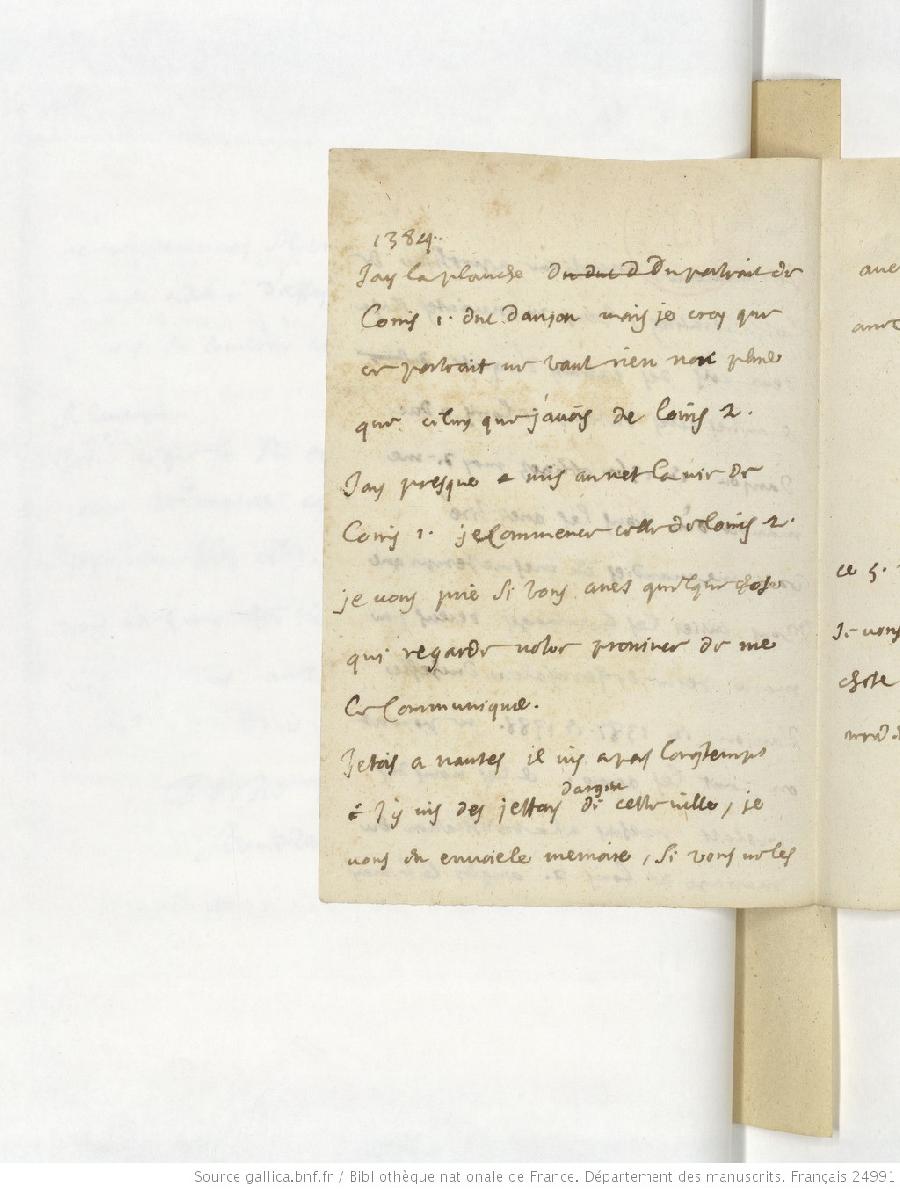 1384.
Jay la planche Du duc D Du portrait de
Louis 1. duc Danjou mais je croy que
ce portrait ne vaut rien non plus
que celuy que j'avois de louis 2.
Jay presque mis au net la vie de
Louis 1. je Commence celle de louis 2.
je vous prie si vous avez quelque chose
qui regarde votre province de me
le Communiquer.
Jetois a nantes il nis a pas longtemps
Jy vis des jettons de cette ville, je
Danjou
vous en envoie le memoire, si vous ne les
ave
ce 5.
Je vous
chose
Source gallica.bnf.fr / Bibliothèque nationale de France. Département des manuscrits. Français 24991